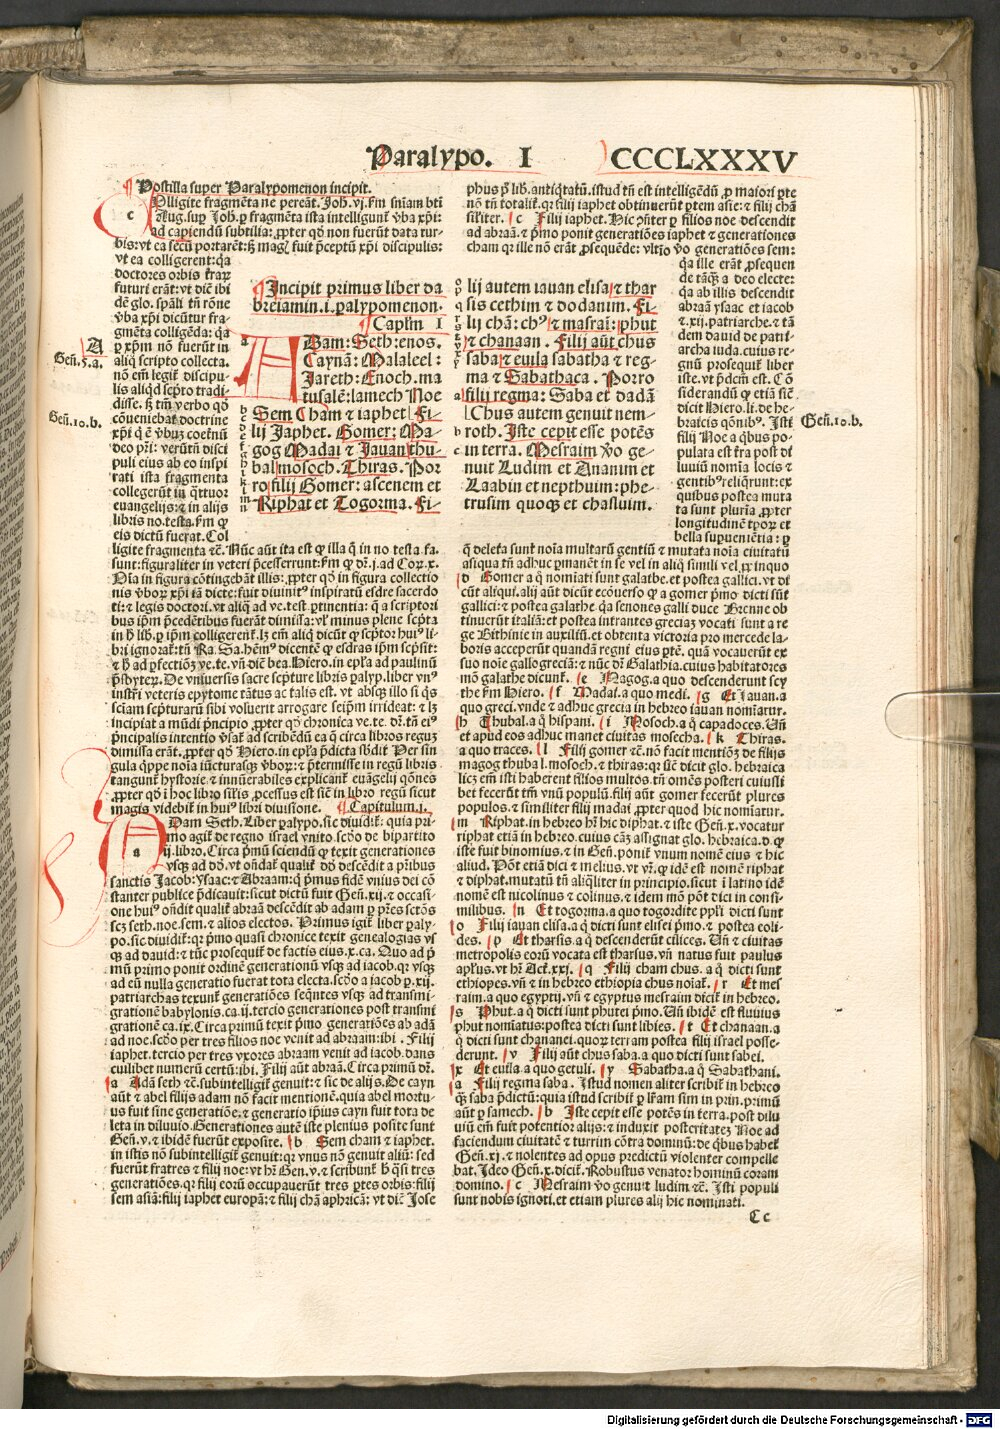 Paralypo. I CCCLXXXXV
Postilla super Paralypomenon incipit.
Colligite fragmēta ne pereāt. Joh. vj. ẜm sniam bti
Aug. sup Joh. p fragmēta ista intelligunt vba xpi:
ad capiendū subtilia: ppter qď non fuerūt data tur-
bis: vt ea secū portarēt: ꝫ magl fuit pceptū xpi discipulis:
vt ea colligerent: qa
doctores orbis terraꝝ
futuri erāt: vt dicit ibi
dē glo. spāli tn rōne
vba xpi dicūtur fra-
gmēta colligēda: qa
p xpm nō fuerūt in
aliq scripto collecta.
nō em legit discipu-
lis aliqd scpto tradi-
disse. ꝫ tm verbo qď
cōueniebat doctrine
xpi q ē vbuz coetnū
deo pri: verūtn disci
puli eius ab eo inspi
rati ista fragmenta
collegerūt in qttuor
euangelijs: ⁊ in alijs
libris no. testa. ẜm q
eis dictū fuerat. Col
A
Geñ. 5. a.
Geñ. 10. b.
Incipit primus liber da
breiamin .i. palypomenon.
Caplm I
ADam: Seth: enos.
Caynā: Malaleel:
Jareth: Enoch. ma
tusalē: lamech Noe
Sem Cham ⁊ iaphet Fi-
lij Japhet. Gomer: Ma-
gog Madai ⁊ Jauan thu-
bal mosoch. Thiras. Por
ro filij Gomer: ascenem et
Riphat et Togorma. Fi-
lij autem iauan elisa ⁊ thar
sis cethim ⁊ dodanim. Fi
lij chā: chꝰ ⁊ masrai: phut
⁊ chanaan. Filij aūt chus
saba ⁊ euila sabatha ⁊ reg-
ma ⁊ Sabathaca. Porro
filij regma: Saba et dadā
Chus autem genuit nem-
roth. Iste cepit esse potēs
in terra. Mesraim vo ge-
nuit Ludim et Anamim et
Laabin et nepthuim: phe-
trusim quoqꝫ et chasluim.
phus p lib. antiqtatū. istud tn est intelligēdū p maiori pte
nō tn totalit. qꝛ filij iaphet obtinuerūt ptem asie: ⁊ filij chā
siliter. c Filij iaphet. Hic pter p filios noe descendit
ad abraā: ⁊ pmo ponit generatiōes iaphet ⁊ generationes
cham qꝛ ille nō erāt psequēde: vltio vo generatiōes sem:
qa ille erāt psequen
de tāq a deo electe:
qa ab illis descendit
abraā ysaac et iacob
⁊ .xij. patriarche. ⁊ tā
dem dauid de patri-
archa iuda. cuius re-
gnū prosequit liber
iste. vt pdcm est. Cō
siderandū q etiā sic
dicit Hiero. li. de he-
braicis qōnibꝰ. Isti
filij Noe a qbus po-
pulata est tra post di
luuiū nomia locis ⁊
gentibꝰ reliqrunt: ex
quibus postea muta
ta sunt pluria. ppter
longitudinē tpoꝝ et
bella supuenietia: p
Geñ. 10. b.
ligite fragmenta ꝛc. Nūc aūt ita est q illa q in no testa. fa.
sunt: figuraliter in veteri pcesserunt: ẜm q dꝛ. j. ad Coꝝ. x.
Oia in figura cōtingebāt illis: ppter qď in figura collectio
nis vboꝝ xpi iā dicte: fuit diuinitꝰ inspiratū esdre sacerdo
ti: ⁊ legis doctori. vt aliq ad ve. test. ptinentia: q a scriptori
bus ipm pcedētibus fuerāt dimissa: vl minus plene scpta
in h lib. p ipm colligerent. lꝫ em aliq dicūt q scptor huiꝰ li-
bri ignorat: tn Ra. Sa. hemꝰ dicentē q esdras ipm scpsit:
⁊ h ad pfectiōꝫ ve. te. vn dicit bea. Hiero. in epla ad paulinū
psbyteꝝ. De vniuersis sacre scpture libris palyp. liber vnꝰ
instri veteris epytome tātus ac talis est. vt absqꝫ illo si qs
sciam scpturarū sibi voluerit arrogare seipm irrideat: ⁊ lꝫ
incipiat a mūdi pncipio ppter qď chronica ve. te. dr. tn eiꝰ
pncipalis intentio vsat ad scribēdū ea q circa libros reguꝫ
dimissa erāt. ppter qď Hiero. in epla pdicta sbdit Per sin
gula qppe noia iūcturasqꝫ vboꝝ: ⁊ ptermisse in regū libris
tangunt hystorie ⁊ innuerabiles explicant euāgelij qōnes
ppter qď i hoc libro silis pcessus est sic in libro regū sicut
magis videbit in huiꝰ libri diuisione. Capitulum .j.
ADam Seth. Liber palypo. sic diuidit: quia pri-
mo agit de regno israel vnito scdo de bipartito
ij. libro. Circa pmū sciendū q texit generationes
vsqꝫ ad dd. vt oñdat qualit dd descēdit a pribus
sanctis Jacob: Ysaac: ⁊ Abraam: q pmus fidē vnius dei cō
stanter publice pdicauit: sicut dictū fuit Geñ. xij. ⁊ occasi-
one huiꝰ oñdit qualit abraā descēdit ab adam p pres sctos
scꝫ seth. noe. sem. ⁊ alios electos. Primus igit liber paly-
po. sic diuidit: qꝛ pmo quasi chronice texit genealogias vs
qꝫ ad dauid: ⁊ tūc prosequit de factis eius. x. ca. Quo ad p
mū primo ponit ordinē generationū vsqꝫ ad iacob: qꝛ vsqꝫ
ad eū nulla generatio fuerat tota electa. scdo a iacob p .xij.
patriarchas texunt generatiōes seqntes vsqꝫ ad transmi-
grationē babylonis. ca. ij. tercio generationes post transmi
grationē ca. ix. Circa primū texit pmo generatiōes ab adā
ad noe. scdo per tres filios noe venit ad abraam: ibi. Filij
iaphet. tercio per tres vxores abraam venit ad iacob. dans
cuilibet numerū certū: ibi. Filij aūt abraā. Circa primū dr.
a Adā seth ꝛc. subintelligit genuit: ⁊ sic de alijs. De cayn
aūt ⁊ abel filijs adam nō facit mentionē. quia abel mortu-
us fuit sine generatiōe. ⁊ generatio ipius cayn fuit tota de
leta in diluuio. Generationes autē iste plenius posite sunt
Geñ. v. ⁊ ibidē fuerūt exposite. b Sem cham ⁊ iaphet.
in istis nō subintelligit genuit: qꝛ vnus nō genuit aliū: sed
fuerūt fratres ⁊ filij noe: vt hr Gen. v. ⁊ scribunt h qsi tres
generatiōes. qꝛ filij eorū occupauerūt tres ptes orbis: filij
sem asiā: filij iaphet europā: ⁊ filij chā aphricā: vt dicit Jose
q deleta sunt noia multarū gentiū ⁊ mutata noia ciuitatū
aliqua tn adhuc pmanēt in se vel in aliq simili vel. pꝛ inquo
d Gomer a q nomiati sunt galathe. et postea gallici. vt di
cūt aliqui. alij aūt dicūt ecōuerso q a gomer pmo dicti sūt
gallici: ⁊ postea galathe qa senones galli duce Brenne ob
tinuerūt italiā: et postea intrantes greciaꝫ vocati sunt a re
ge Bithinie in auxiliū. et obtenta victoria pro mercede la-
boris acceperūt quandā regni eius ptē. quā vocauerūt ex
suo noie gallogreciā: ⁊ nūc dr Galathia. cuius habitatores
mō galathe dicunt. e Magog. a quo descenderunt scy
the ẜm Hiero. f Madai. a quo medi. g Et iauan. a
quo greci. vnde ⁊ adhuc grecia in hebreo iauan nomiatur.
h Thubal. a q hispani. i Mosoch. a q capadoces. Vn
et apud eos adhuc manet ciuitas mosecha. k Thiras.
a quo traces. l Filij gomer ꝛc. nō facit mentionē de filijs
magog thubal. mosoch. ⁊ thiras: qꝛ sic dicit glo. hebraica
licꝫ em isti haberent filios multos. tn omēs posteri cuiusli
bet fecerūt tm vnū populū. filij aūt gomer fecerūt plures
populos. ⁊ similiter filij madai ppter quod hic nomiatur.
m Riphat. in hebreo hꝛ hic diphat. ⁊ iste Geñ. x. vocatur
riphat etiā in hebreo. cuius cāꝫ assignat glo. hebraica. d. q
iste fuit binomius. ⁊ in Geñ. ponit vnum nomē eius ⁊ hic
aliud. Pōt etiā dici ⁊ melius. vt vr. q idē est nomē riphat
⁊ diphat. mutatū tn aliqliter in principio. sicut i latino idē
nomē est nicolinus ⁊ colinus. ⁊ idem mō pōt dici in consi-
milibus. n Et togorma. a quo togordite ppli dicti sunt
o Filij iauan elisa. a q dicti sunt elisei pmo. ⁊ postea eoli-
des. p Et tharsis. a q descenderūt cilices. Vn ⁊ ciuitas
metropolis eorū vocata est tharsus. vn natus fuit paulus
aplus. vt hr Act. xxj. q Filij cham chus. a q dicti sunt
ethiopes. vn ⁊ in hebreo ethiopia chus noiat. r Et mes
raim. a quo egyptij. vn ⁊ egyptus mesraim dicit in hebreo.
s Phut. a q dicti sunt phutei pmo. Vn ibidē est fluuius
phut nomiatus: postea dicti sunt libies. t Et chanaan. a
q dicti sunt chananei. quoꝝ terram postea filij israel posse-
derunt. v Filij aūt chus saba. a quo dicti sunt sabei.
x Et euila. a quo getuli. y Sabatha. a q Sabathani.
a Filij regma saba. Istud nomen aliter scribit in hebreo
q saba pdictū: quia istud scribit p lram sim in prin. primū
aūt p samech. b Iste cepit esse potēs in terra. post dilu
uiū em fuit potentior alijs: ⁊ induxit posteritateꝫ Noe ad
faciendum ciuitatē ⁊ turrim cōtra dominū: de qbus habet
Geñ. xj. ⁊ nolentes ad opus predictū violenter compelle
bat. Ideo Geñ. x. dicit. Robustus venator hominū coram
domino. c Mesraim vo genuit ludim ꝛc. Isti populi
sunt nobis ignoti. et etiam plures alij hic nominati.
Cc
Digitalisierung gefördert durch die Deutsche Forschungsgemeinschaft - DFG